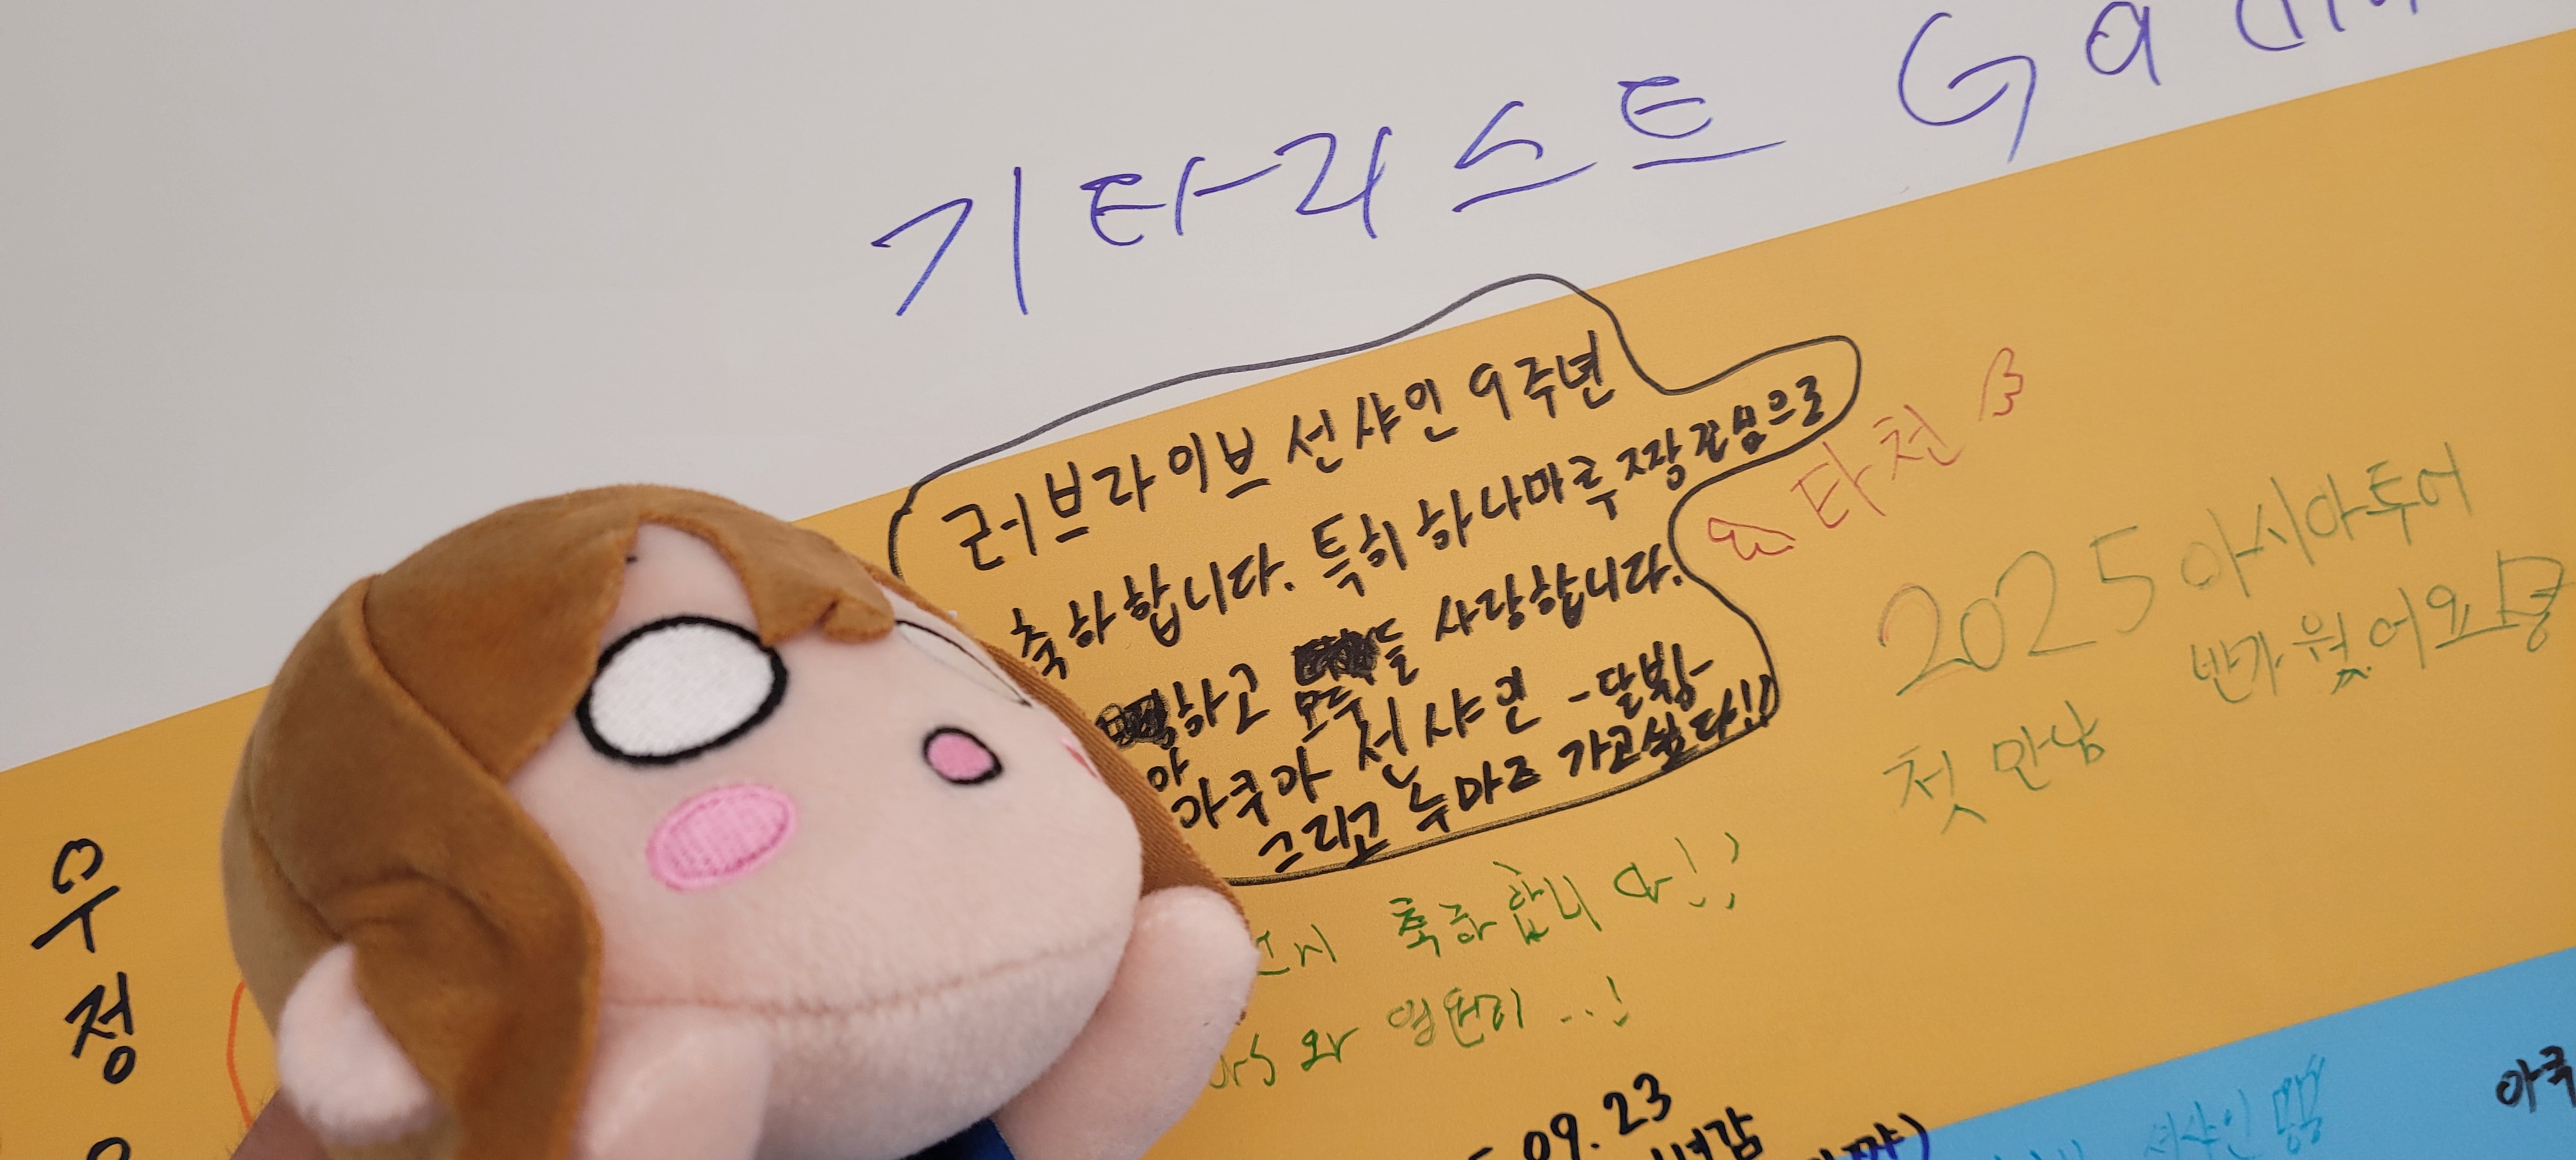 기타리스트 Ga
러브라이브 선샤인 9주년
축하합니다. 특히 하나마루 짱 진심으로
하고 모두들 사랑합니다.
아쿠아 선샤인 -달빛-
그리고 누마즈 가고싶다!!
타천
2025 아시아투어
첫 만남 반가웠어요
축하합니다!!
와 영원히...!
우정
09.23
아쿠